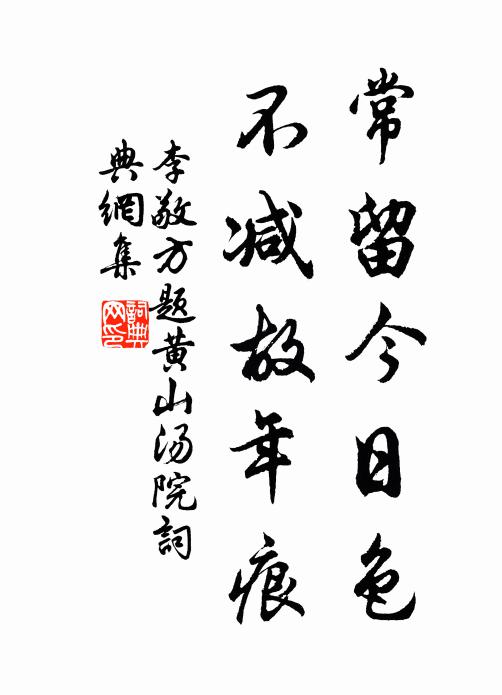 常留今日色
不減故年痕
李敬方题黄山汤院詞
典網集
詞典
网印